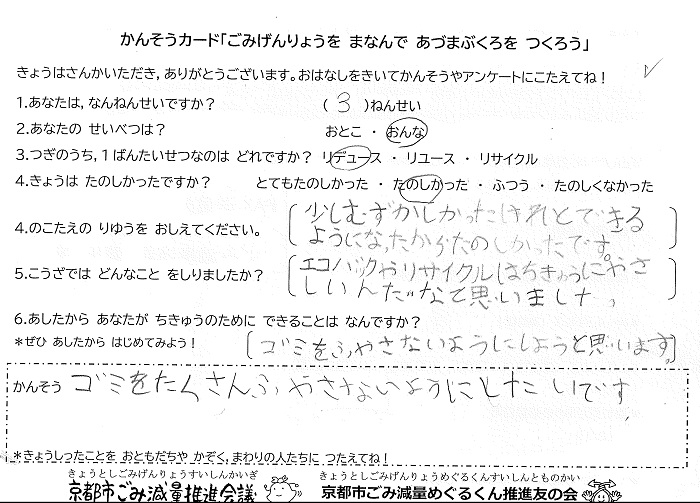 かんそうカード「ごみげんりょうを まなんで あづまぶくろを つくろう」
きょうはさんかいただき,ありがとうございます。おはなしをきいてかんそうやアンケートにこたえてね！
1.あなたは,なんねんせいですか？ ( 3 )ねんせい
2.あなたの せいべつは？ おとこ ・ おんな
3.つぎのうち,1ばんたいせつなのは どれですか？ リデュース ・ リユース ・ リサイクル
4.きょうは たのしかったですか？ とてもたのしかった ・ たのしかった ・ ふつう ・ たのしくなかった
少しむずかしかったけれどできる
4.のこたえの りゆうを おしえてください。
ようになったからたのしかったです。
エコバックやリサイクルはちきゅうにやさ
5.こうざでは どんなこと をしりましたか？
しいんだなと思いました。
6.あしたから あなたが ちきゅうのために できることは なんですか？
*ぜひ あしたから はじめてみよう！ ゴミをふやさないようにしようと思います。
かんそう ゴミをたくさんふやさないようにしたいです
*きょうしったことを おともだちや かぞく,まわりの人たちに つたえてね！
きょうとしごみげんりょうすいしんかいぎ きょうとしごみげんりょうめぐるくんすいしんとものかい
京都市ごみ減量推進会議 京都市ごみ減量めぐるくん推進友の会